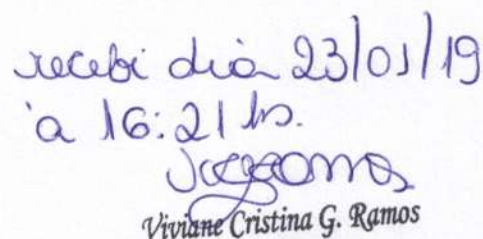 recebi dia 23/01/19
à 16:21 hs.
Viviane Cristina G. Ramos